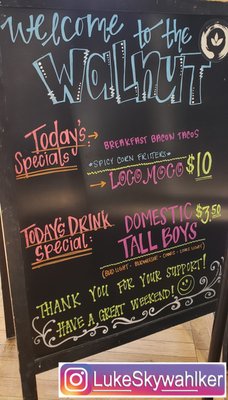 Welcome to the
Walnut
Today's
Specials
→ BREAKFAST BACON TACOS
*SPICY CORN FRITTERS*
→ LOCO MOCO $10
TODAY'S DRINK
SPECIAL:
DOMESTIC $3.50
TALL BOYS
(BUD LIGHT - BUDWEISER - COORS - COORS LIGHT)
THANK YOU FOR YOUR SUPPORT!
HAVE A GREAT WEEKEND!
LukeSkywahlker